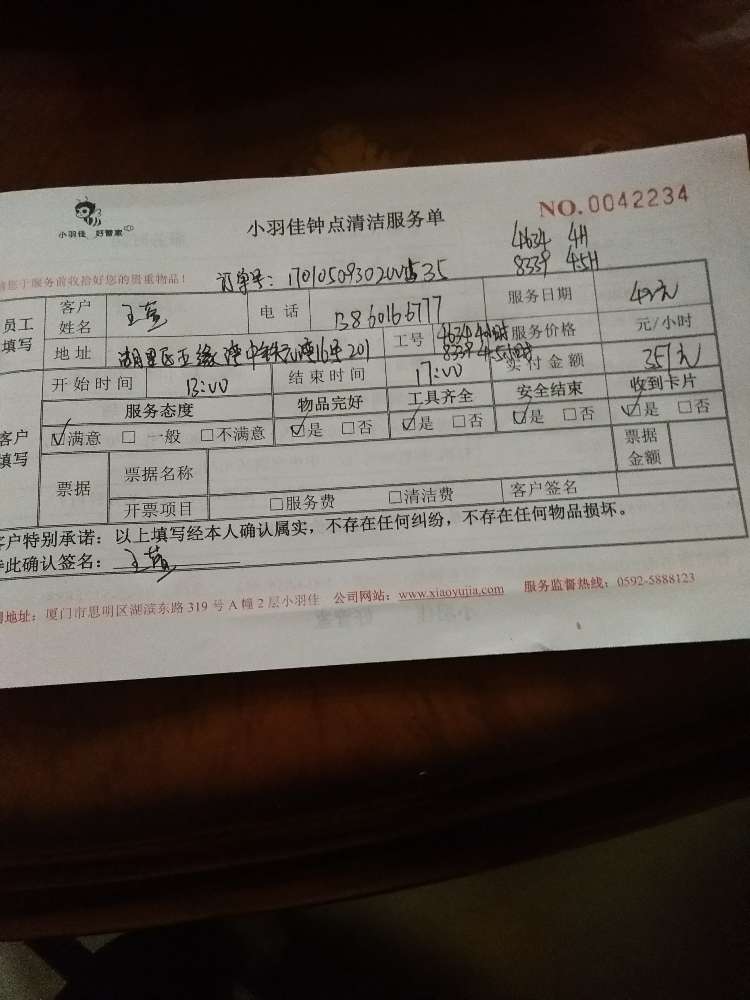 小羽佳 好管家
小羽佳钟点清洁服务单
NO.0042234
4634 4H
8339 4.5H
您于服务前收拾好您的贵重物品!
订单号:
员工填写
客户姓名
电话
服务日期
42元
地址
湖里区五缘湾中铁元湾16号201
工号
4634 4小时
8339 4.5小时
服务价格
元/小时
开始时间
13:00
结束时间
17:00
实付金额
357元
客户填写
服务态度
物品完好
工具齐全
安全结束
收到卡片
☑满意 □一般 □不满意
☑是 □否
☑是 □否
☑是 □否
☑是 □否
票据
票据名称
票据金额
开票项目
□服务费 □清洁费
客户签名
客户特别承诺:以上填写经本人确认属实,不存在任何纠纷,不存在任何物品损坏。
此确认签名:
地址:厦门市思明区湖滨东路319号A幢2层小羽佳 公司网站:www.xiaoyujia.com 服务监督热线:0592-5888123